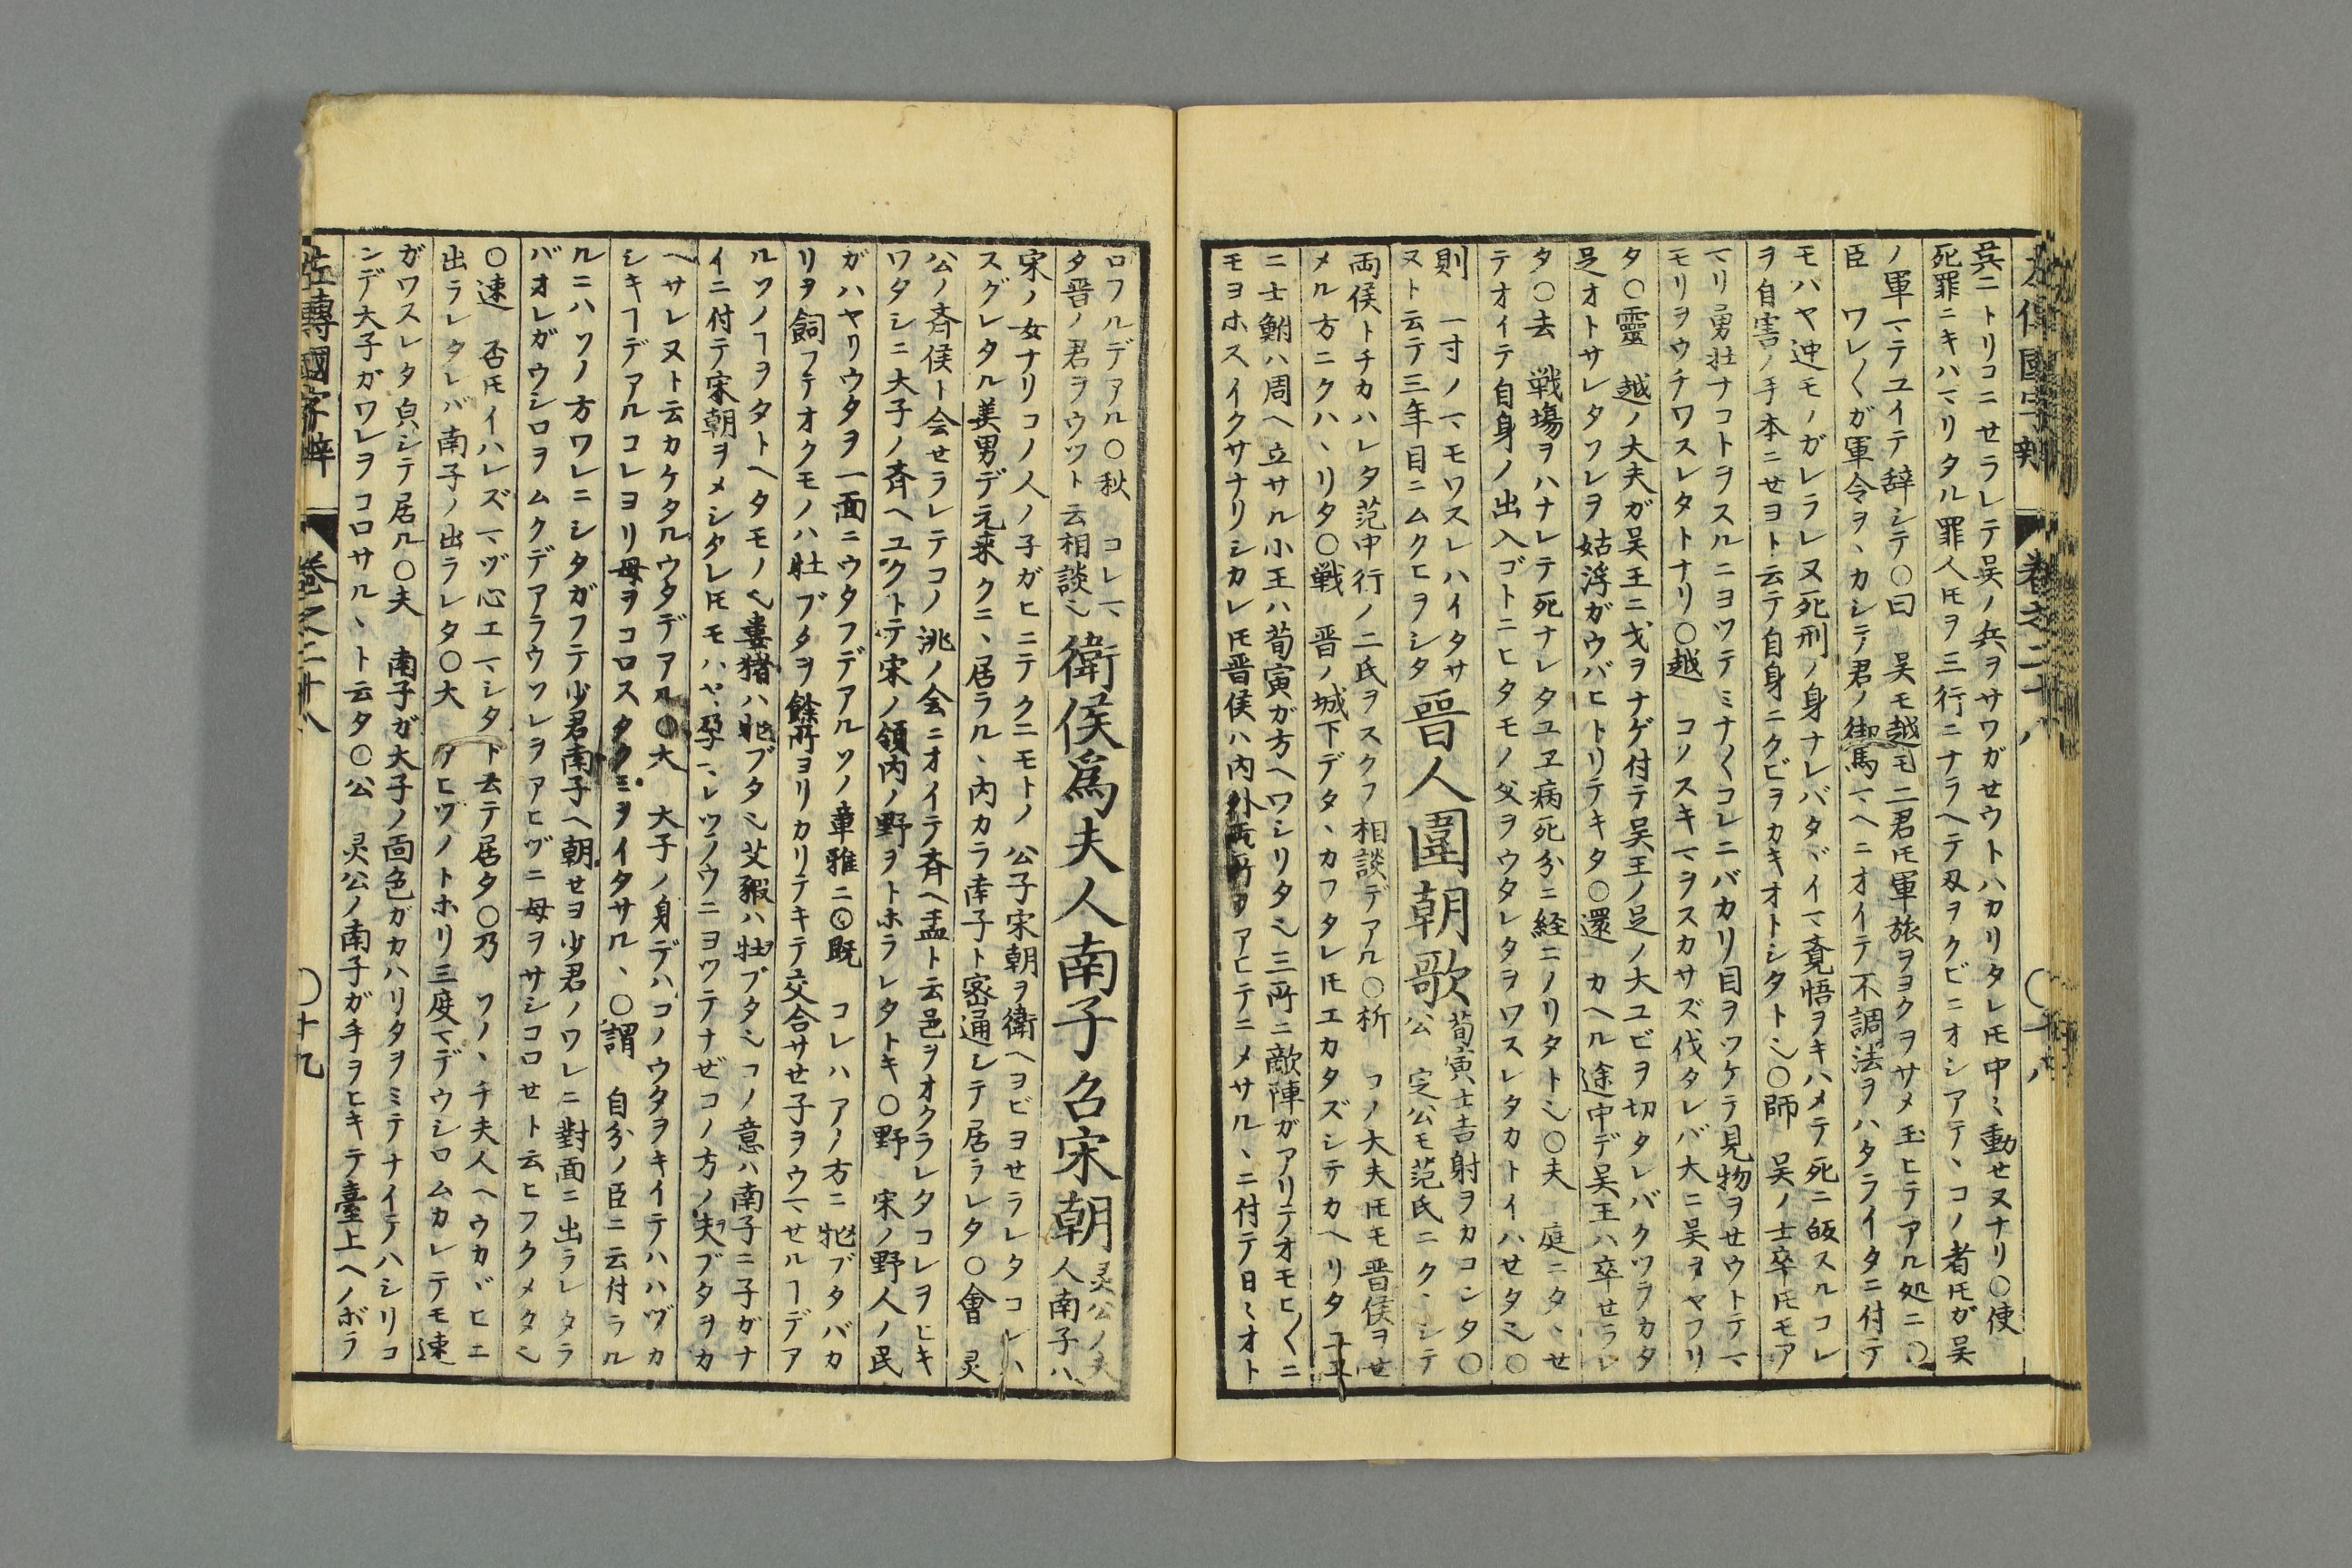 左傳國字辯 巻之二十八 ○十八
呉ニトリコニセラレテ呉ノ兵ヲサワガセウトハカリタレ𪜈中〻動セヌナリ○使
死罪ニキハマリタル罪人𪜈ヲ三行ニナラヘテ刄ヲクビニオシアテ、コノ者𪜈ガ呉
ノ軍マテユイテ辞シテ○曰 呉モ越モ二君𪜈軍旅ヲヨクヲサメ玉ヒテアル処ニ○
臣 ワレ〳〵ガ軍令ヲ、カシテ君ノ御馬マヘニオイテ不調法ヲハタライタニ付テ
モハヤ迚モノガレラレヌ死刑ノ身ナレバタヾイマ覚悟ヲキハメテ死ニ皈スルコレ
ヲ自害ノ手本ニセヨト云テ自身ニクビヲカキオトシタト也○師 呉ノ士卒𪜈モア
マリ勇壮ナコトヲスルニヨツテミナ〳〵コレニバカリ目ヲツケテ見物ヲセウトテマ
モリヲウチワスレタトナリ○越 コノスキマヲスカサズ伐タレバ大ニ呉ヲヤフリ
タ○靈 越ノ大夫ガ呉王ニ戈ヲナゲ付テ呉王ノ足ノ大ユビヲ切タレバクツラカタ
足オトサレタソレヲ姑浮ガウバヒトリテキタ○還 カヘル途中デ呉王ハ卒セラレ
タ○去 戦塲ヲハナレテ死ナレタユヱ病死分ニ経ニノリタト也○夫 庭ニタ、セ
テオイテ自身ノ出入ゴトニヒタモノ父ヲウタレタヲワスレタカトイハセタ也○
則 一寸ノマモワスレハイタサ
ヌト云テ三年目ニムクヒヲシタ
晉人圍朝歌
荀寅士吉射ヲカコンタ○
公 定公モ范氏ニク、シテ
両侯トチカハレタ范中行ノ二氏ヲスクフ相談デアル○析 コノ大夫𪜈モ晋侯ヲせ
メル方ニクハ、リタ○戦 晋ノ城下デタ、カフタレ𪜈エカタズシテカヘリタ
ニ士鮒ハ周ヘ立サル小王ハ荀寅ガ方ヘワシリタ也三所ニ敵陣ガアリテオモヒ〳〵ニ
モヨホスイクサナリシカレ𪜈晋侯ハ内外両所ヲアヒテニメサル、ニ付テ日〻オト
ロフルデアル○秋 コレマ
タ晋ノ君ヲウツト云相談也
衛侯爲夫人南子召宋朝
灵公ノ夫
人南子ハ
宋ノ女ナリコノ人ノ子ガヒニテクニモトノ公子宋朝ヲ衛ヘヨビヨせラレタコレハ
スグレタル美男デ元来クニ、居ラル、内カラ南子ト密通シテ居ラレタ○會 灵
公ノ斉侯ト会せラレテコノ洮ノ会ニオイテ斉ヘ盂ト云邑ヲオクラレタコレヲヒキ
ワタシニ大子ノ斉ヘユクトテ宋ノ領内ノ野ヲトホラレタトキ○野 宋ノ野人ノ民
ガハヤリウタヲ一面ニウタフデアルソノ章雅ニ○既 コレハアノ方ニ牝ブタバカ
リヲ飼フテオクモノハ牡ブタヲ餘所ヨリカリテキテ交合サせ子ヲウマせルヿデア
ルソノヿヲタトヘタモノ也婁猪ハ牝ブタ也艾豭ハ牡ブタ也コノ意ハ南子ニ子ガナ
イニ付テ宋朝ヲメシタレ𪜈モハヤ、孕マレソノウニヨツテナゼコノ方ノ夫ブタヲカ
ヘサレヌト云カケタルウタデアル○大 大子ノ身デハコノウタヲキイテハハヅカ
シキヿデアルコレヨリ母ヲコロスタクミヲイタサル、○謂 自分ノ臣ニ云付ラル
ルニハソノ方ワレニシタガフテ少君南子ヘ朝せヨ少君ノワレニ對面ニ出ラレタラ
バオレガウシロヲムクデアラウソレヲアヒヅニ母ヲサシコロせト云ヒフクメタ也
○速 否𪜈イハレズマヅ心エマシタト云テ居タ○乃 ソノ、チ夫人ヘウカヾヒニ
出ラレタレバ南子ノ出ラレタ○大 タヒヅノトホリ三度マデウシロムカレテモ速
ガワスレタ㒵シテ居ル○夫 南子ガ大子ノ面色ガカハリタヲミテナイテハシリコ
ンデ大子ガワレヲコロサル、ト云タ○公 灵公ノ南子ガ手ヲヒキテ臺上ヘノボラ
左傳國字辯 巻之二十八 ○十九